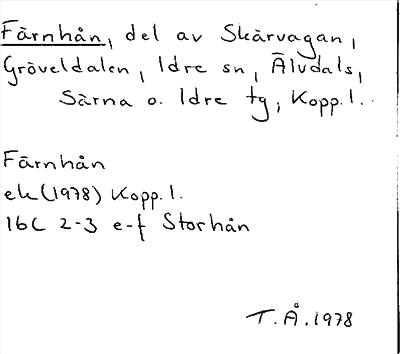 Färnhån, del av Skärvagan,
Gröveldalen, Idre sn, Älvdals,
Särna o. Idre tg, Kopp.l.
Färnhån
ek (1978) Kopp.l.
16C 2-3 e-f Storhån
T.Å. 1978